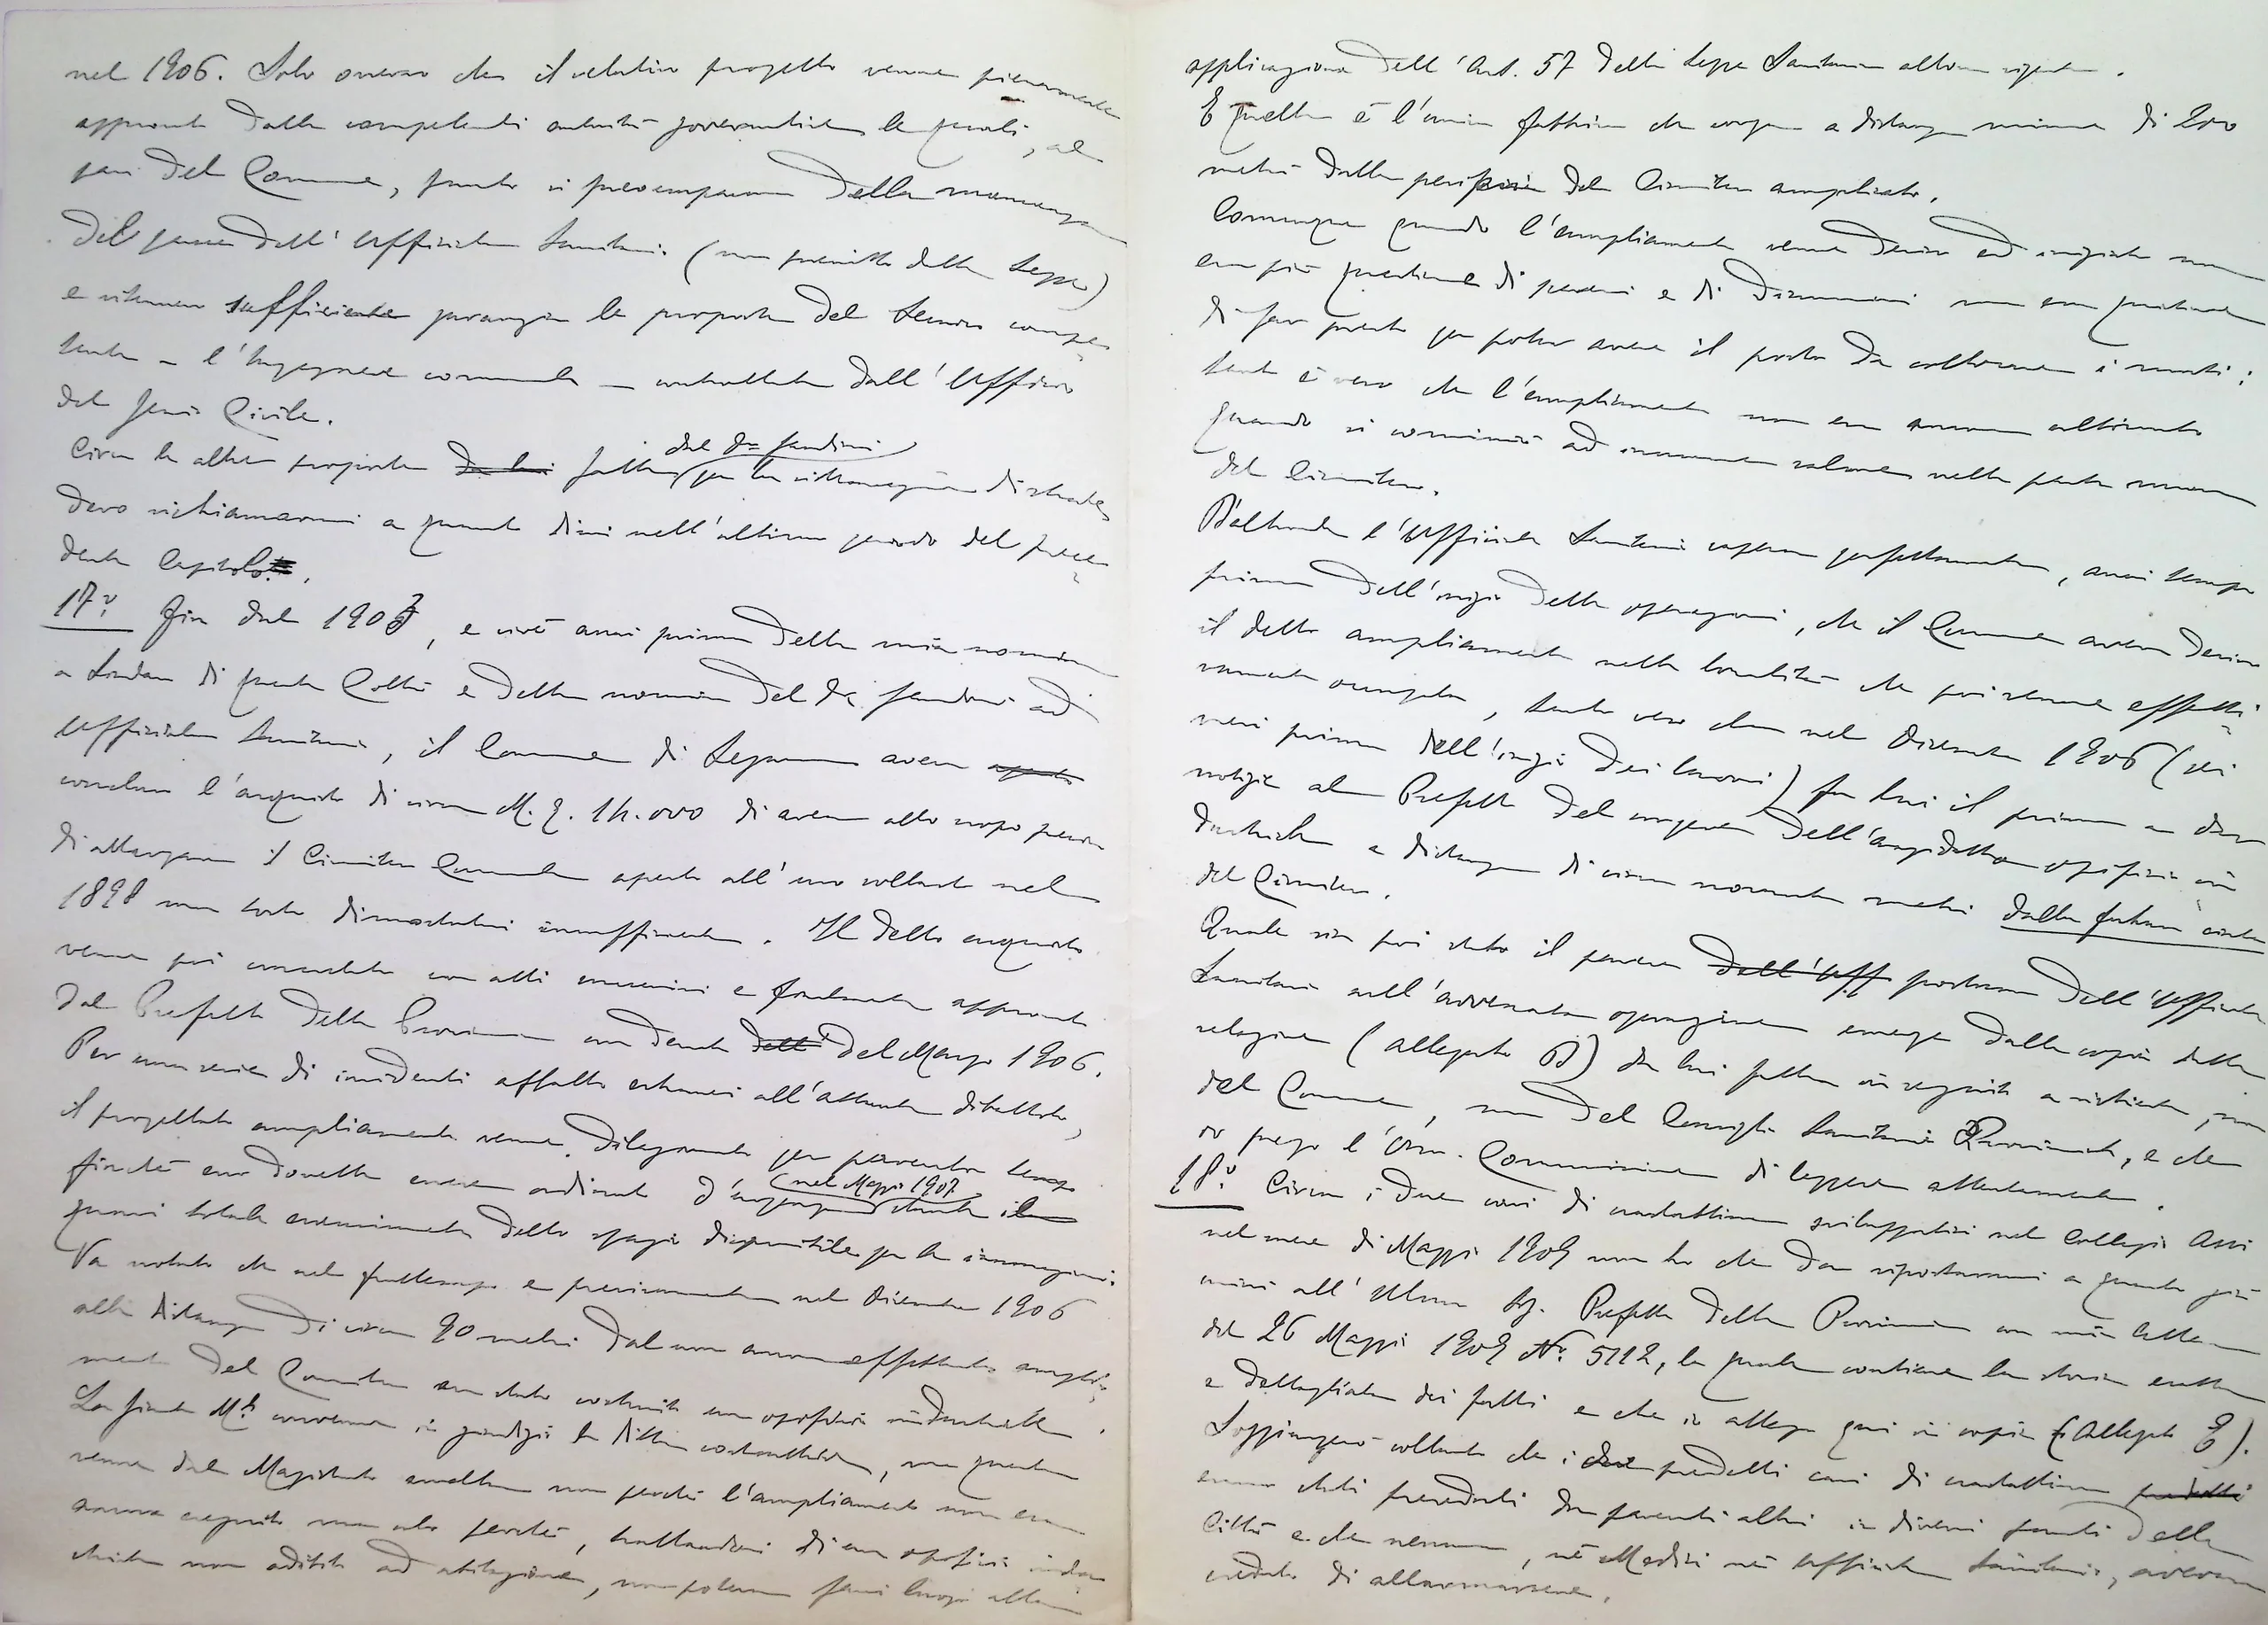 nel 1906. Solo osservo che il relativo progetto venne pienamente
approvato dalle competenti autorità governative le quali, al
pari del Comune, punto si preoccuparono della mancanza
del parere dell'Ufficiale Sanitario (non prescritto dalla Legge)
e ritennero sufficiente garanzia le proposte del tecnico compe=
tente – l'Ingegnere comunale – controllate dall'Ufficio
del Genio Civile.
Circa le altre proposte da lui fatte dal Dr Gandini per la sistemazione di strade
devo richiamarmi a quanto dissi nell'ultimo periodo del prece=
dente Capitolo.
17º Fin dal 1903, e cioè anni prima della mia nomina
a Sindaco di questa Città e della nomina del Dr. Gandini ad
Ufficiale Sanitario, il Comune di Legnano aveva
concluso l'acquisto di circa M. q. 14.000 di area allo scopo preciso
di allargare il Cimitero Comunale aperto all'uso soltanto nel
1898 ma tosto dimostratosi insufficiente. Il detto acquisto
venne poi consolidato con atti successivi e finalmente approvato
dal Prefetto della Provincia con decreto dell' del Marzo 1906.
Per una serie di incidenti affatto estranei all'attuale dibattito,
il progettato ampliamento venne dilazionato per parecchio tempo
finchè esso dovette essere ordinato d'urgenza nel Maggio 1907 stante il
quasi totale esaurimento dello spazio disponibile per le inumazioni.
Va notato che nel frattempo e precisamente nel Dicembre 1906
alla distanza di circa 90 metri dal non ancora effettuato amplia=
mento del Cimitero era stato costruito un opificio industriale.
La Giunta M.le convenne in giudizio la Ditta costruttrice, ma questa
venne dal Magistrato assolta non perchè l'ampliamento non era
ancora eseguito ma solo perchè, trattandosi di un opificio indu=
striale non adibito ad abitazione, non poteva farsi luogo alla
applicazione dell'Art. 57 della Legge Sanitaria allora vigente.
E quello è l'unico fabbricato che sorga a distanza minore di 200
metri dalla periferia del Cimitero ampliato.
Comunque quando l'ampliamento venne deciso ed iniziato non
era più questione di pareri e di discussioni ma era questione
di far presto per poter avere il posto da collocare i morti;
tanto è vero che l'ampliamento non era ancora ultimato
quando si cominciò ad inumare salme nella parte nuova
del Cimitero.
D'altronde l'Ufficiale Sanitario sapeva perfettamente, assai tempo
prima dell'inizio delle operazioni, che il Comune aveva deciso
il detto ampliamento nella località che poi venne effetti=
vamente occupata, tanto vero che nel Dicembre 1906 (sei
mesi prima dell'inizio dei lavori) fu lui il primo a dare
notizia al Prefetto del sorgere dell'anzidetto opificio in=
dustriale a distanza di circa novanta metri dalla futura cinta
del Cimitero.
Quale sia poi stato il parere dell'Uff postumo dell'Ufficiale
Sanitario sull'avversata operazione emerge dalla copia della
relazione (allegato D) da lui fatta in seguito a richiesta, non
del Comune, ma del Consiglio Sanitario Provinciale, e che
io prego l'On. Commissione di leggere attentamente.
18º Circa i due casi di scarlattina sviluppatisi nel Collegio
nel mese di Maggio 1909 non ho che da riportarmi a quanto già
scrissi all'Illmo Sig. Prefetto della Provincia con mia lettera
del 26 Maggio 1909 Nº. 5112, la quale contiene la storia esatta
e dettagliata dei fatti e che io allego qui in copia (Allegato E).
Soggiungerò soltanto che i due predetti casi di scarlattina predetti
erano stati preceduti da parecchi altri in diversi punti della
Città e che nessuno, nè Medici nè Ufficiale Sanitario, aveva
creduto di allarmarsene.